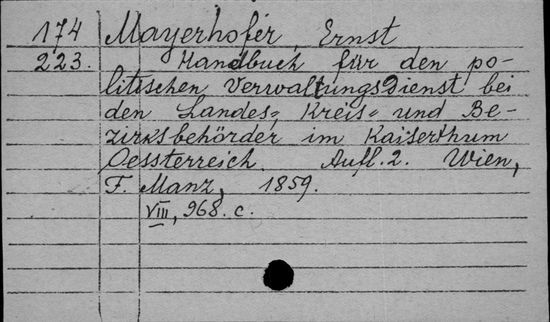 174 Mayerhofer Ernst
223. Handbuch für den po-
litischen Verwaltungsdienst bei
den Landes-, Kreis- und Be-
zirksbehörder im Kaiserthum
Oessterreich. Aufl. 2. Wien,
F. Manz, 1859.
VIII, 968. c.